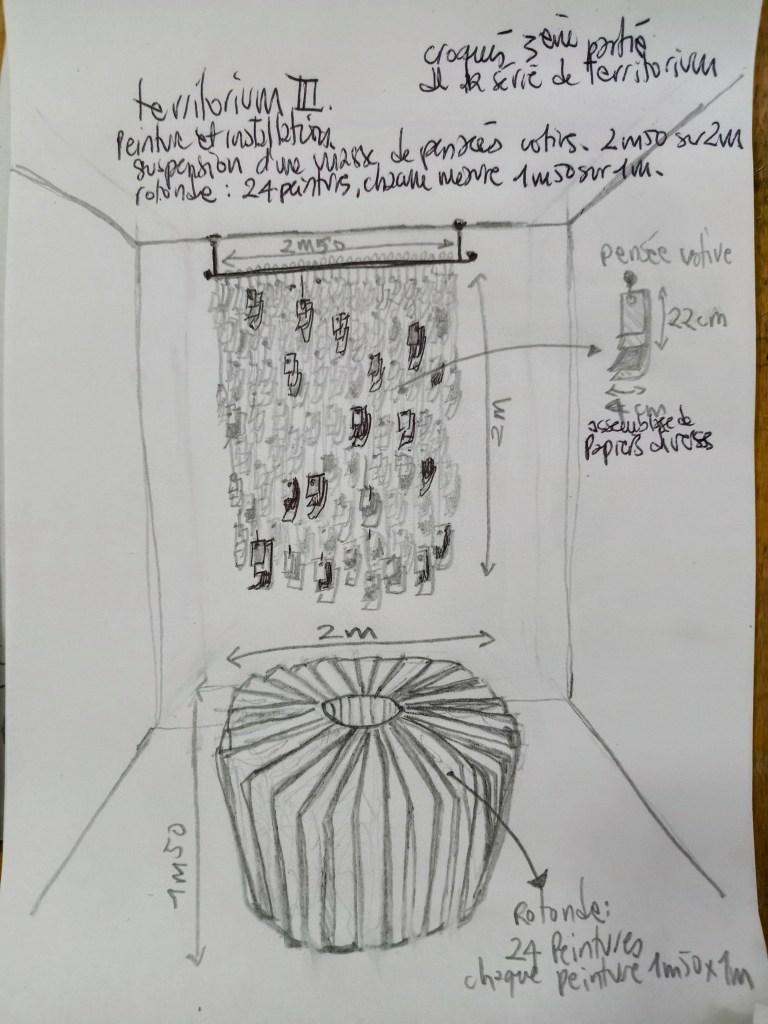 croquis 3ème partie
de la série de territorium
territorium III.
Peinture et installation.
suspension d'une masse de pensées votives. 2m50 sur 2m
rotonde : 24 peintures, chaque mesure 1m50 sur 1m.
2m50
pensée votive
22cm
4 cm
assemblage de
papiers divers
2m
2m
1m50
Rotonde:
24 Peintures
chaque peinture 1m50x1m